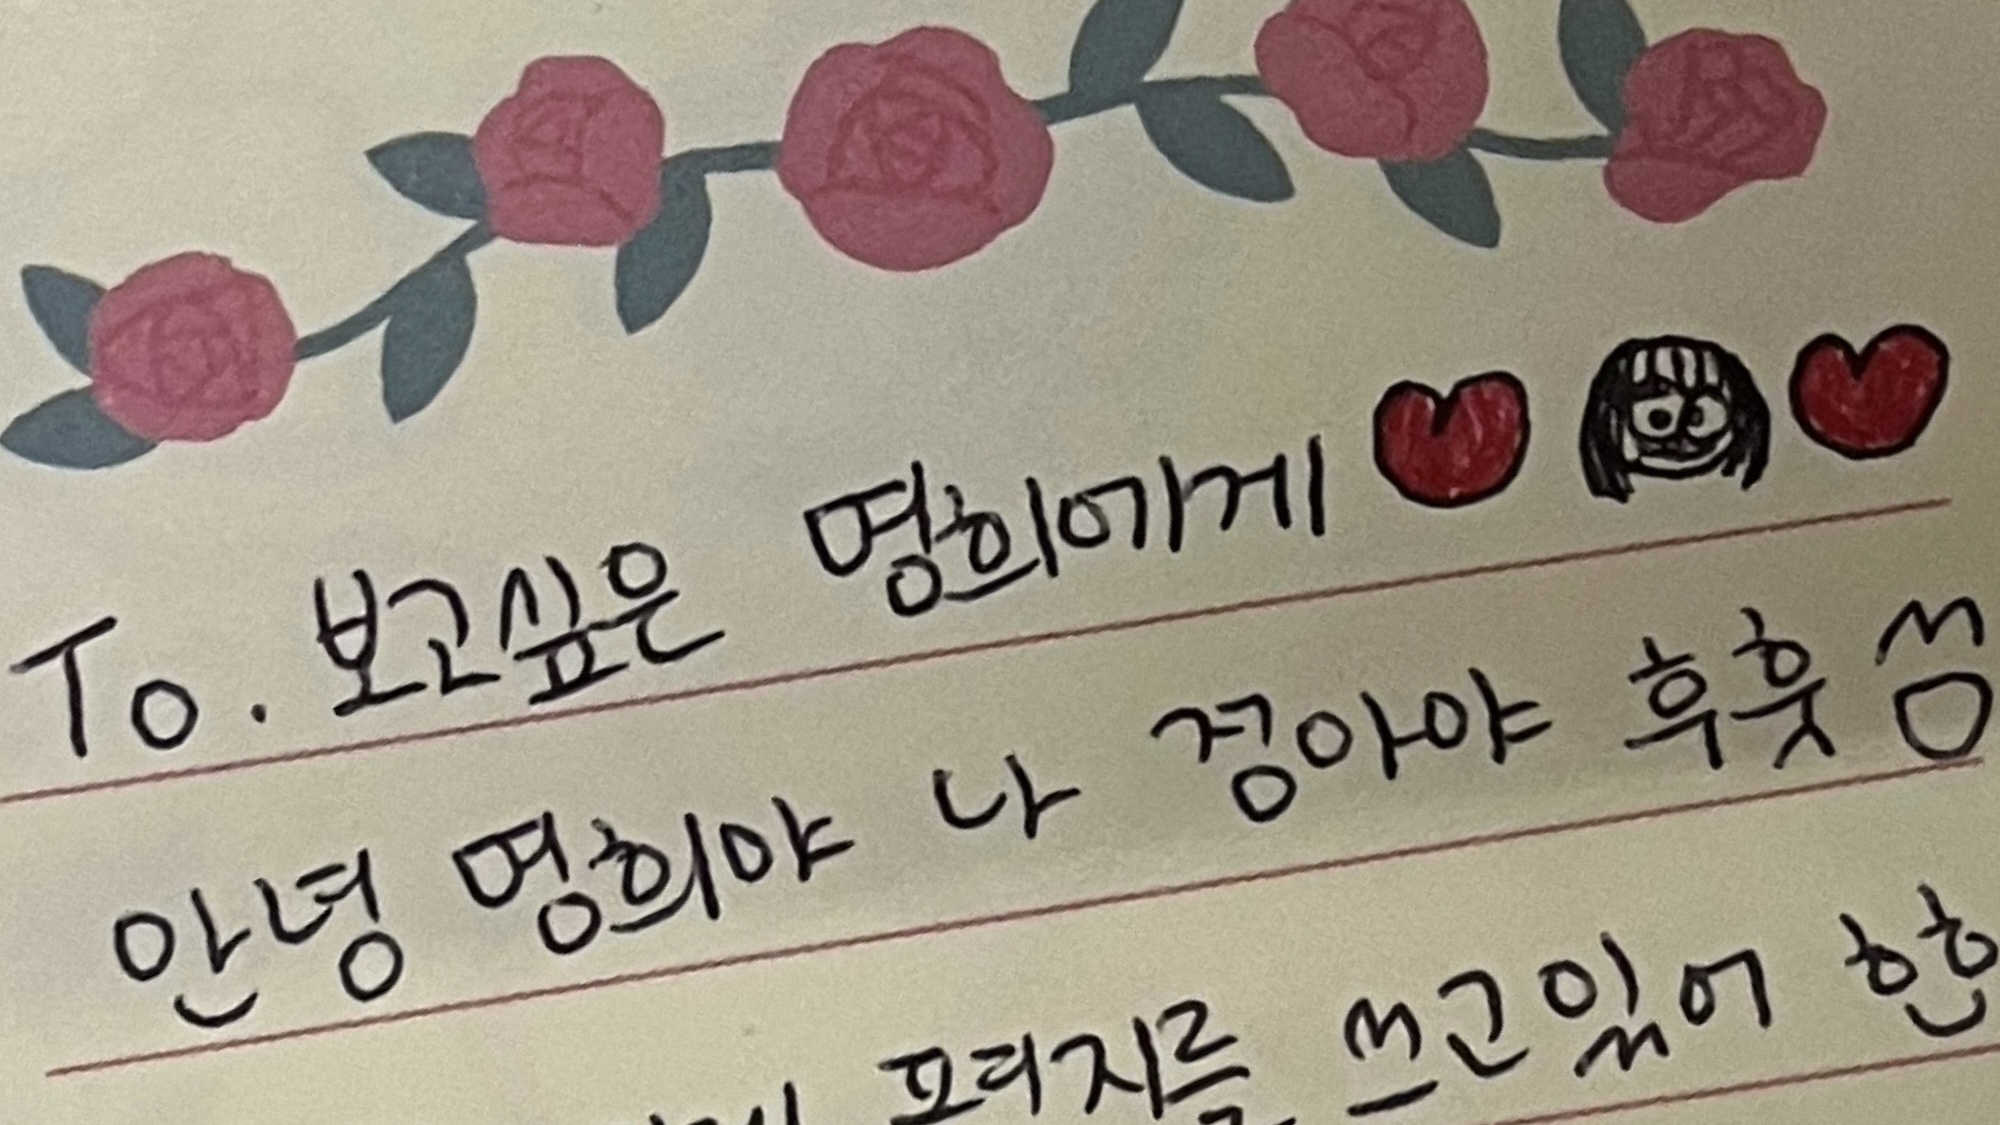 To. 보고싶은 명희에게
안녕 명희야 나 정아야 후훗
편지를 쓰고있어